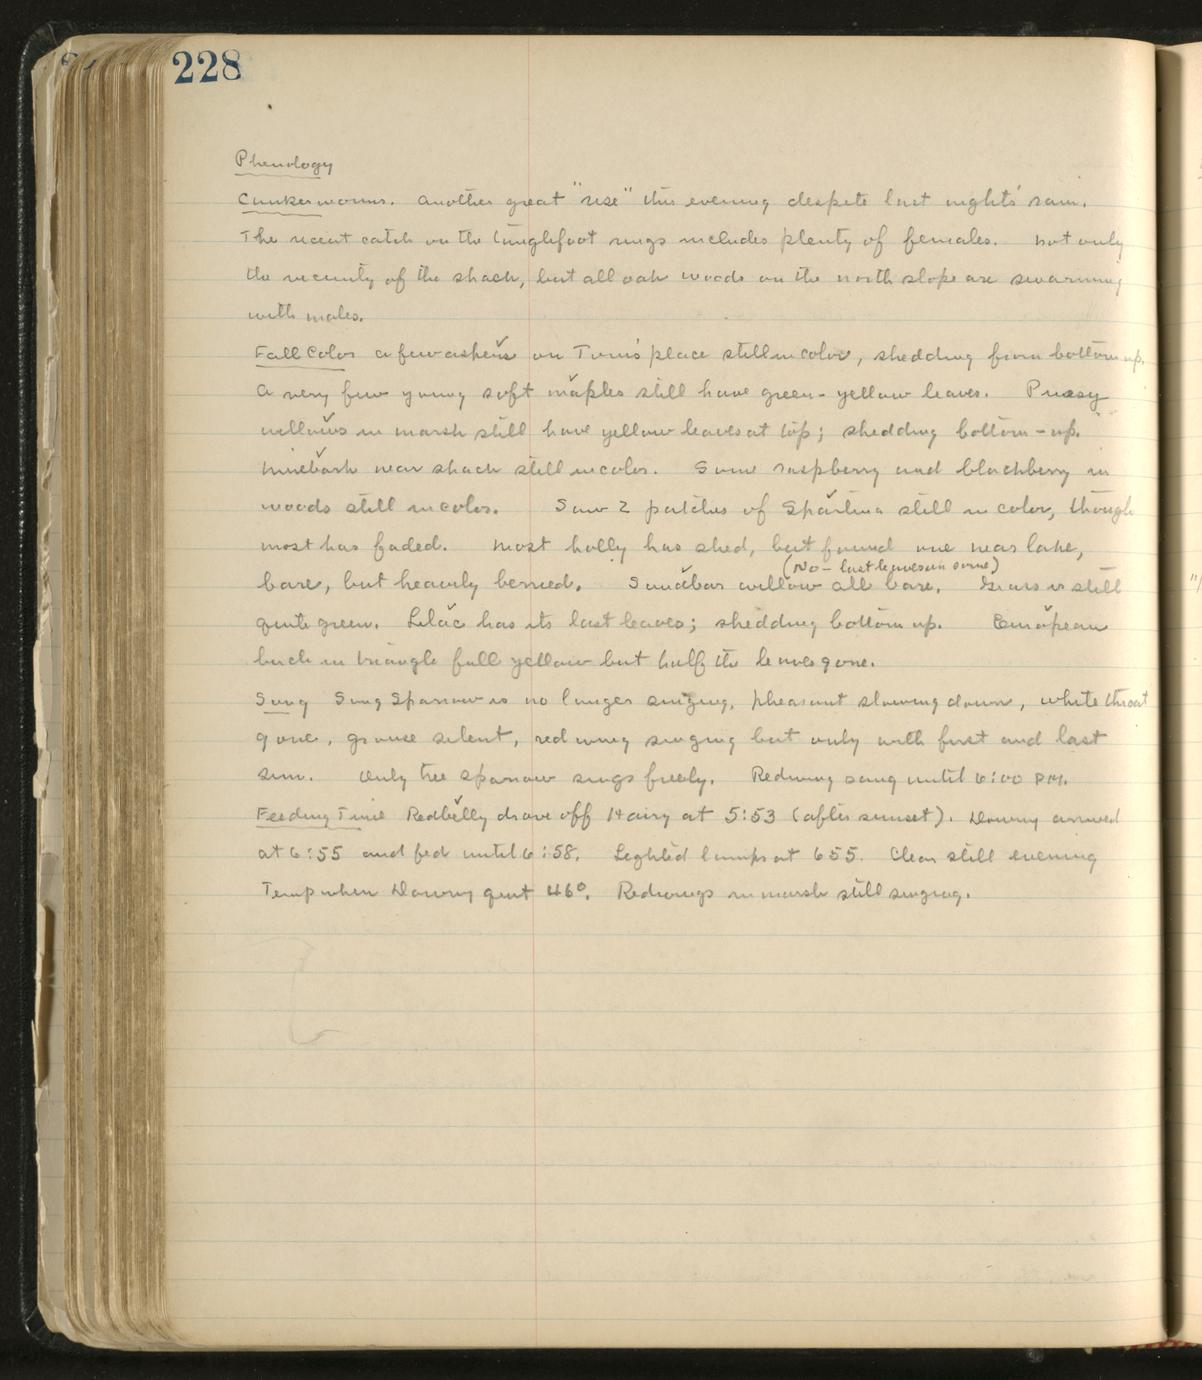 228
Phenology
Cankerworms. Another great "rise" this evening despite last nights' rain.
The recent catch on the tanglefoot rings includes plenty of females. Not only
the vicinity of the shack, but all oak woods on the north slope are swarming
with males.
Fall Color A few ashens on Tom's place still in color, shedding from bottom up.
A very few young soft maples still have green-yellow leaves. Pussy
willows in marsh still have yellow leaves at top; shedding bottom-up.
Ninebark near shack still in color. Some raspberry and blackberry in
woods still in color. Saw 2 patches of Spartina still in color, though
most has faded. Most holly has shed, but found one near lake,
(No - last leaves in some)
bare, but heavily berried. Sandbar willow all bare. Grass is still
quite green. Lilac has its last leaves; shedding bottom up. European
larch in triangle full yellow but half the leaves gone.
Song Song Sparrow is no longer singing, pheasant slowing down, whitethroat
gone, grouse silent, redwing singing but only with first and last
sun. Only tree sparrow sings freely. Redwing sang until 6:00 PM.
Feeding Time Redbelly drove off Hairy at 5:53 (after sunset). Downy arrived
at 6:55 and fed until 6:58. Lighted lamps at 655. Clear still evening
Temp when Downy quit 46°. Redwings in marsh still singing.